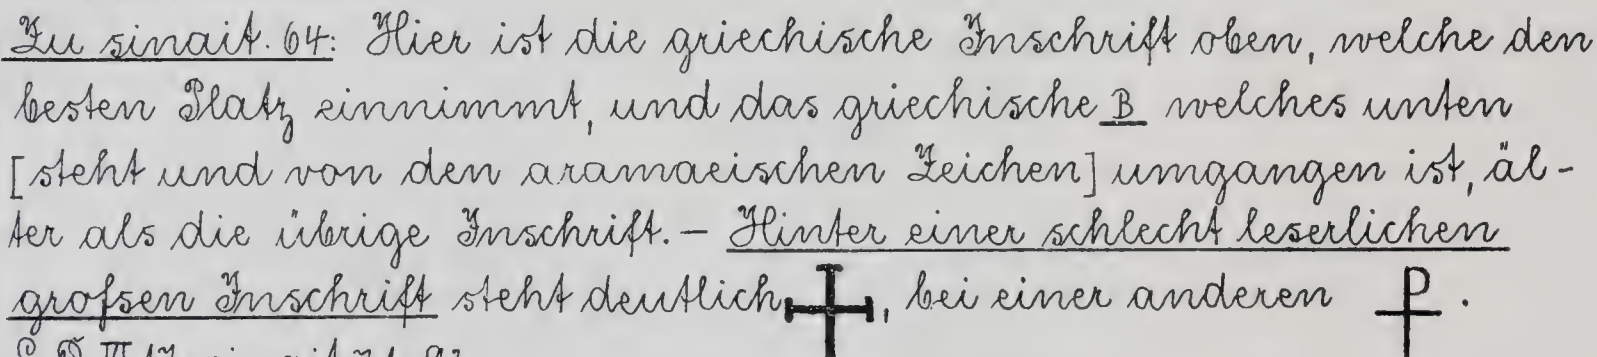 Zu sinait. 64: Hier ist die griechische Inschrift oben, welche den
besten Platz einnimmt, und das griechische B welches unten
[steht und von den aramaeischen Zeichen] umgangen ist, äl-
ter als die übrige Inschrift. – Hinter einer schlecht leserlichen
grofsen Inschrift steht deutlich, bei einer anderen .